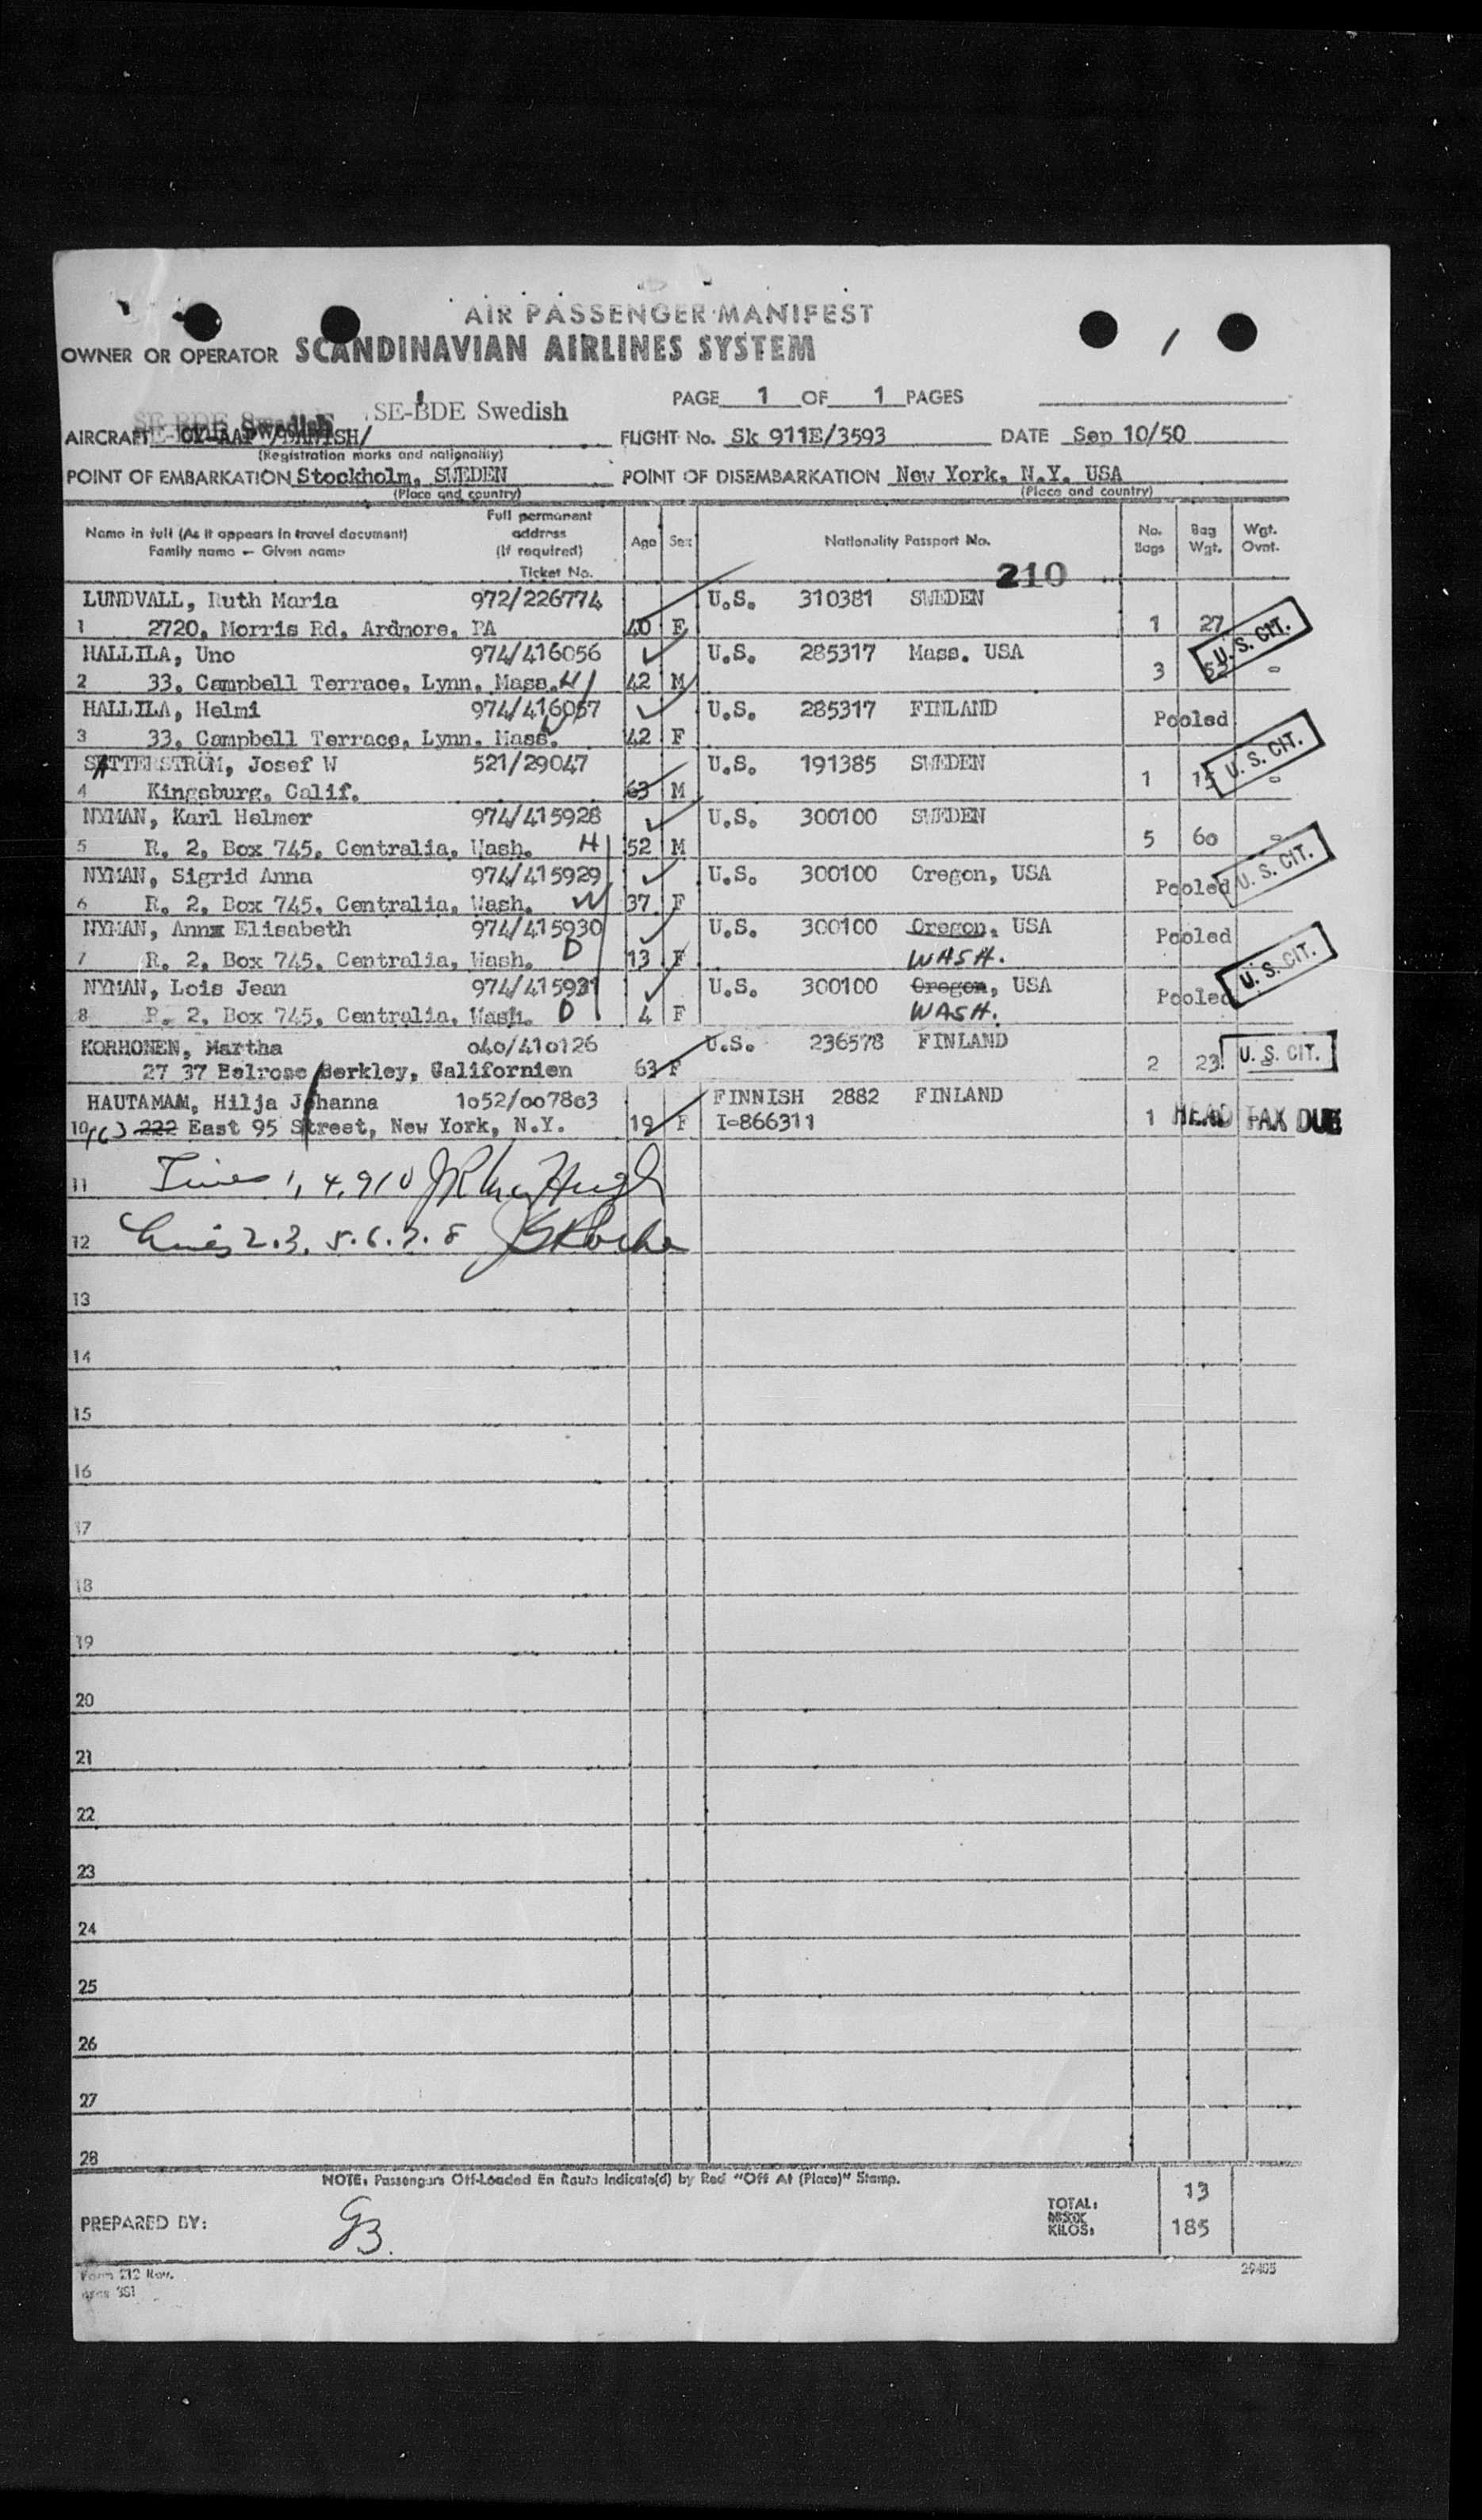 AIR PASSENGER MANIFEST
OWNER OR OPERATOR SCANDINAVIAN AIRLINES SYSTEM
PAGE 1 OF 1 PAGES
SE-BDE Swedish SE-BDE Swedish
AIRCRAFT OY-AAP /DANISH/ FLIGHT No. Sk 911E/3593 DATE Sep 10/50
(Registration marks and nationality)
POINT OF EMBARKATION Stockholm, SWEDEN POINT OF DISEMBARKATION New York, N.Y. USA
(Place and country) (Place and country)
Name in full (As it appears in travel document) Family name — Given name Full permanent address (If required) Ticket No. Age Sex Nationality Passport No. No. Bags Bag Wgt. Wgt. Ovnt.
210
LUNDVALL, Ruth Maria 972/226774 U.S. 310381 SWEDEN
1 2720, Morris Rd, Ardmore, PA 40 F 1 27
U.S. CIT.
HALLILA, Uno 974/416056 U.S. 285317 Mass. USA
2 33, Campbell Terrace, Lynn, Mass. H 42 M 3
HALLILA, Helmi 974/416057 U.S. 285317 FINLAND
3 33, Campbell Terrace, Lynn, Mass. W 42 F Pooled
SATTERSTROM, Josef W 521/29047 U.S. 191385 SWEDEN
4 Kingsburg, Calif. 63 M 1 15 U.S. CIT.
NYMAN, Karl Helmer 974/415928 U.S. 300100 SWEDEN
5 R. 2, Box 745, Centralia, Wash. H 52 M 5 60
NYMAN, Sigrid Anna 974/415929 U.S. 300100 Oregon, USA
6 R. 2, Box 745, Centralia, Wash. W 37 F Pooled U.S. CIT.
NYMAN, Annx Elisabeth 974/415930 U.S. 300100 Oregon, USA
7 R. 2, Box 745, Centralia, Wash. D 13 F WASH. Pooled
NYMAN, Lois Jean 974/415931 U.S. 300100 Oregon, USA
8 R. 2, Box 745, Centralia, Wash. D 4 F WASH. Pooled U.S. CIT.
KORHONEN, Martha 040/410126 U.S. 236578 FINLAND
27 37 Belrose Berkley, Californien 63 F 2 23 U.S. CIT.
HAUTAMAM, Hilja Johanna 1052/007803 FINNISH 2882 FINLAND
10 163 222 East 95 Street, New York, N.Y. 19 F I-866311 1 HEAD TAX DUE
11 Lines 1, 4, 9 10
12 Lines 2. 3. 5. 6. 7. 8
13
14
15
16
17
18
19
20
21
22
23
24
25
26
27
28
NOTE: Passengers Off-Loaded En Route Indicate(d) by Red "Off At (Place)" Stamp.
TOTAL: 13
PREPARED BY: GB. KILOS: 185
Form 212 Rev.
29405